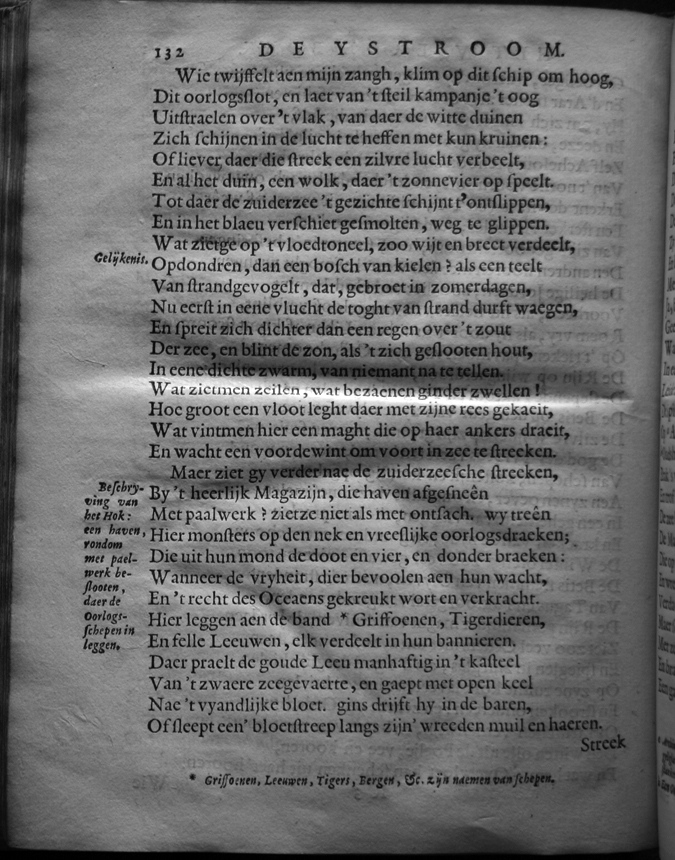 132 DE YSTROOM.
Wie twijffelt aen mijn zangh, klim op dit ſchip om hoog,
Dit oorlogsſlot, en laet van 't ſteil kampanje 't oog
Uitſtraelen over 't vlak, van daer de witte duinen
Zich ſchijnen in de lucht te heffen met kun kruinen:
Of liever daer die ſtreek een zilvre lucht verbeelt,
En al het duin, een wolk, daer 't zonnevier op ſpeelt.
Tot daer de zuiderzee 't gezichte ſchijnt t'ontſlippen,
En in het blaeu verſchiet geſmolten, weg te glippen.
Wat zietge op 't vloedtoneel, zoo wijt en breet verdeelt,
Gelijkenis.
Opdondren, dan een boſch van kielen? als een teelt
Van ſtrandgevogelt, dat, gebroet in zomerdagen,
Nu eerſt in eene vlucht de toght van ſtrand durft waegen,
En ſpreit zich dichter dan een regen over 't zout
Der zee, en blint de zon, als 't zich geſlooten hout,
In eene dichte zwarm, van niemant na te tellen.
Wat zietmen zeilen, wat bezaenen ginder zwellen!
Hoe groot een vloot leght daer met zijne rees gekaeit,
Wat vintmen hier een maght die op haer ankers draeit,
En wacht een voordewint om voort in zee te ſtreeken.
Maer ziet gy verder nae de zuiderzeeſche ſtreeken,
Beſchry-
ving van
het Hok:
een haven,
rondom
met pael-
werk be-
ſlooten,
daer de
Oorlogs-
ſchepen in
leggen.
By 't heerlijk Magazijn, die haven afgeſneên
Met paalwerk? zietze niet als met ontſach. wy treên
Hier monſters op den nek en vreeſlijke oorlogsdraeken;
Die uit hun mond de doot en vier, en donder braeken:
Wanneer de vryheit, dier bevoolen aen hun wacht,
En 't recht des Oceaens gekreukt wort en verkracht.
Hier leggen aen de band * Griffoenen, Tigerdieren,
En felle Leeuwen, elk verdeelt in hun bannieren.
Daer praelt de goude Leeu manhaftig in 't kaſteel
Van 't zwaere zeegevaerte, en gaept met open keel
Nae 't vyandlijke bloet. gins drijft hy in de baren,
Of ſleept een' bloetſtreep langs zijn' wreeden muil en haeren.
Streek
* Griffoenen, Leeuwen, Tigers, Bergen, &c. zijn naemen van ſchepen.